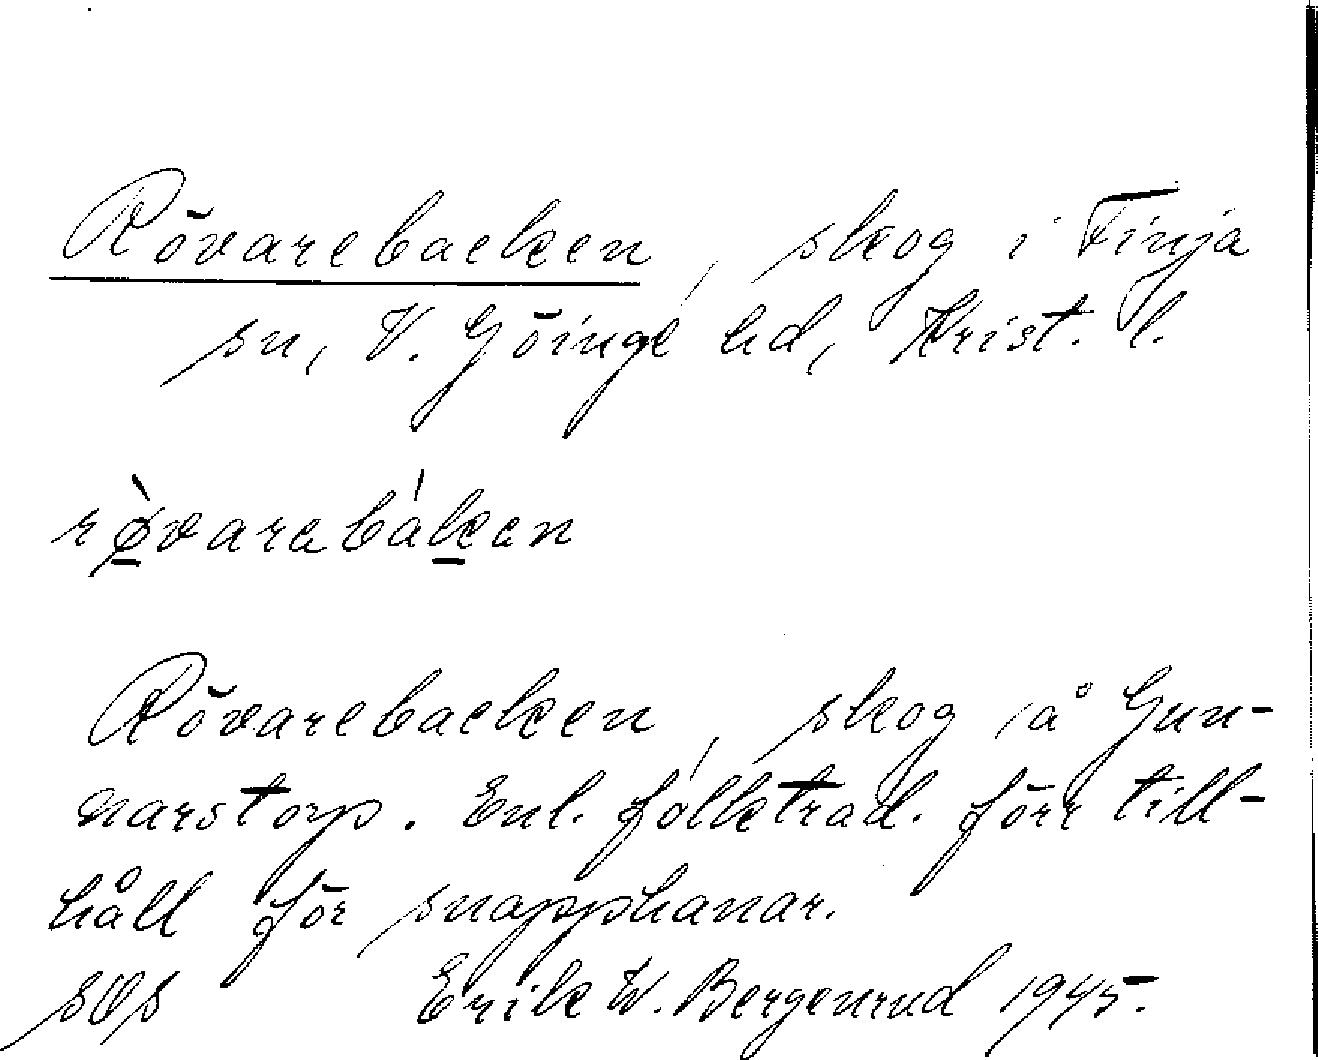 Rövarebacken, skog i Finja
sn, V. Göinge hd, Krist. l.
røvarabakan
Rövarebacken, skog å Gun-
narstorp. Enl. folktrad. förr till-
håll för snapphanar.
Erik W. Bergenrud 1945.